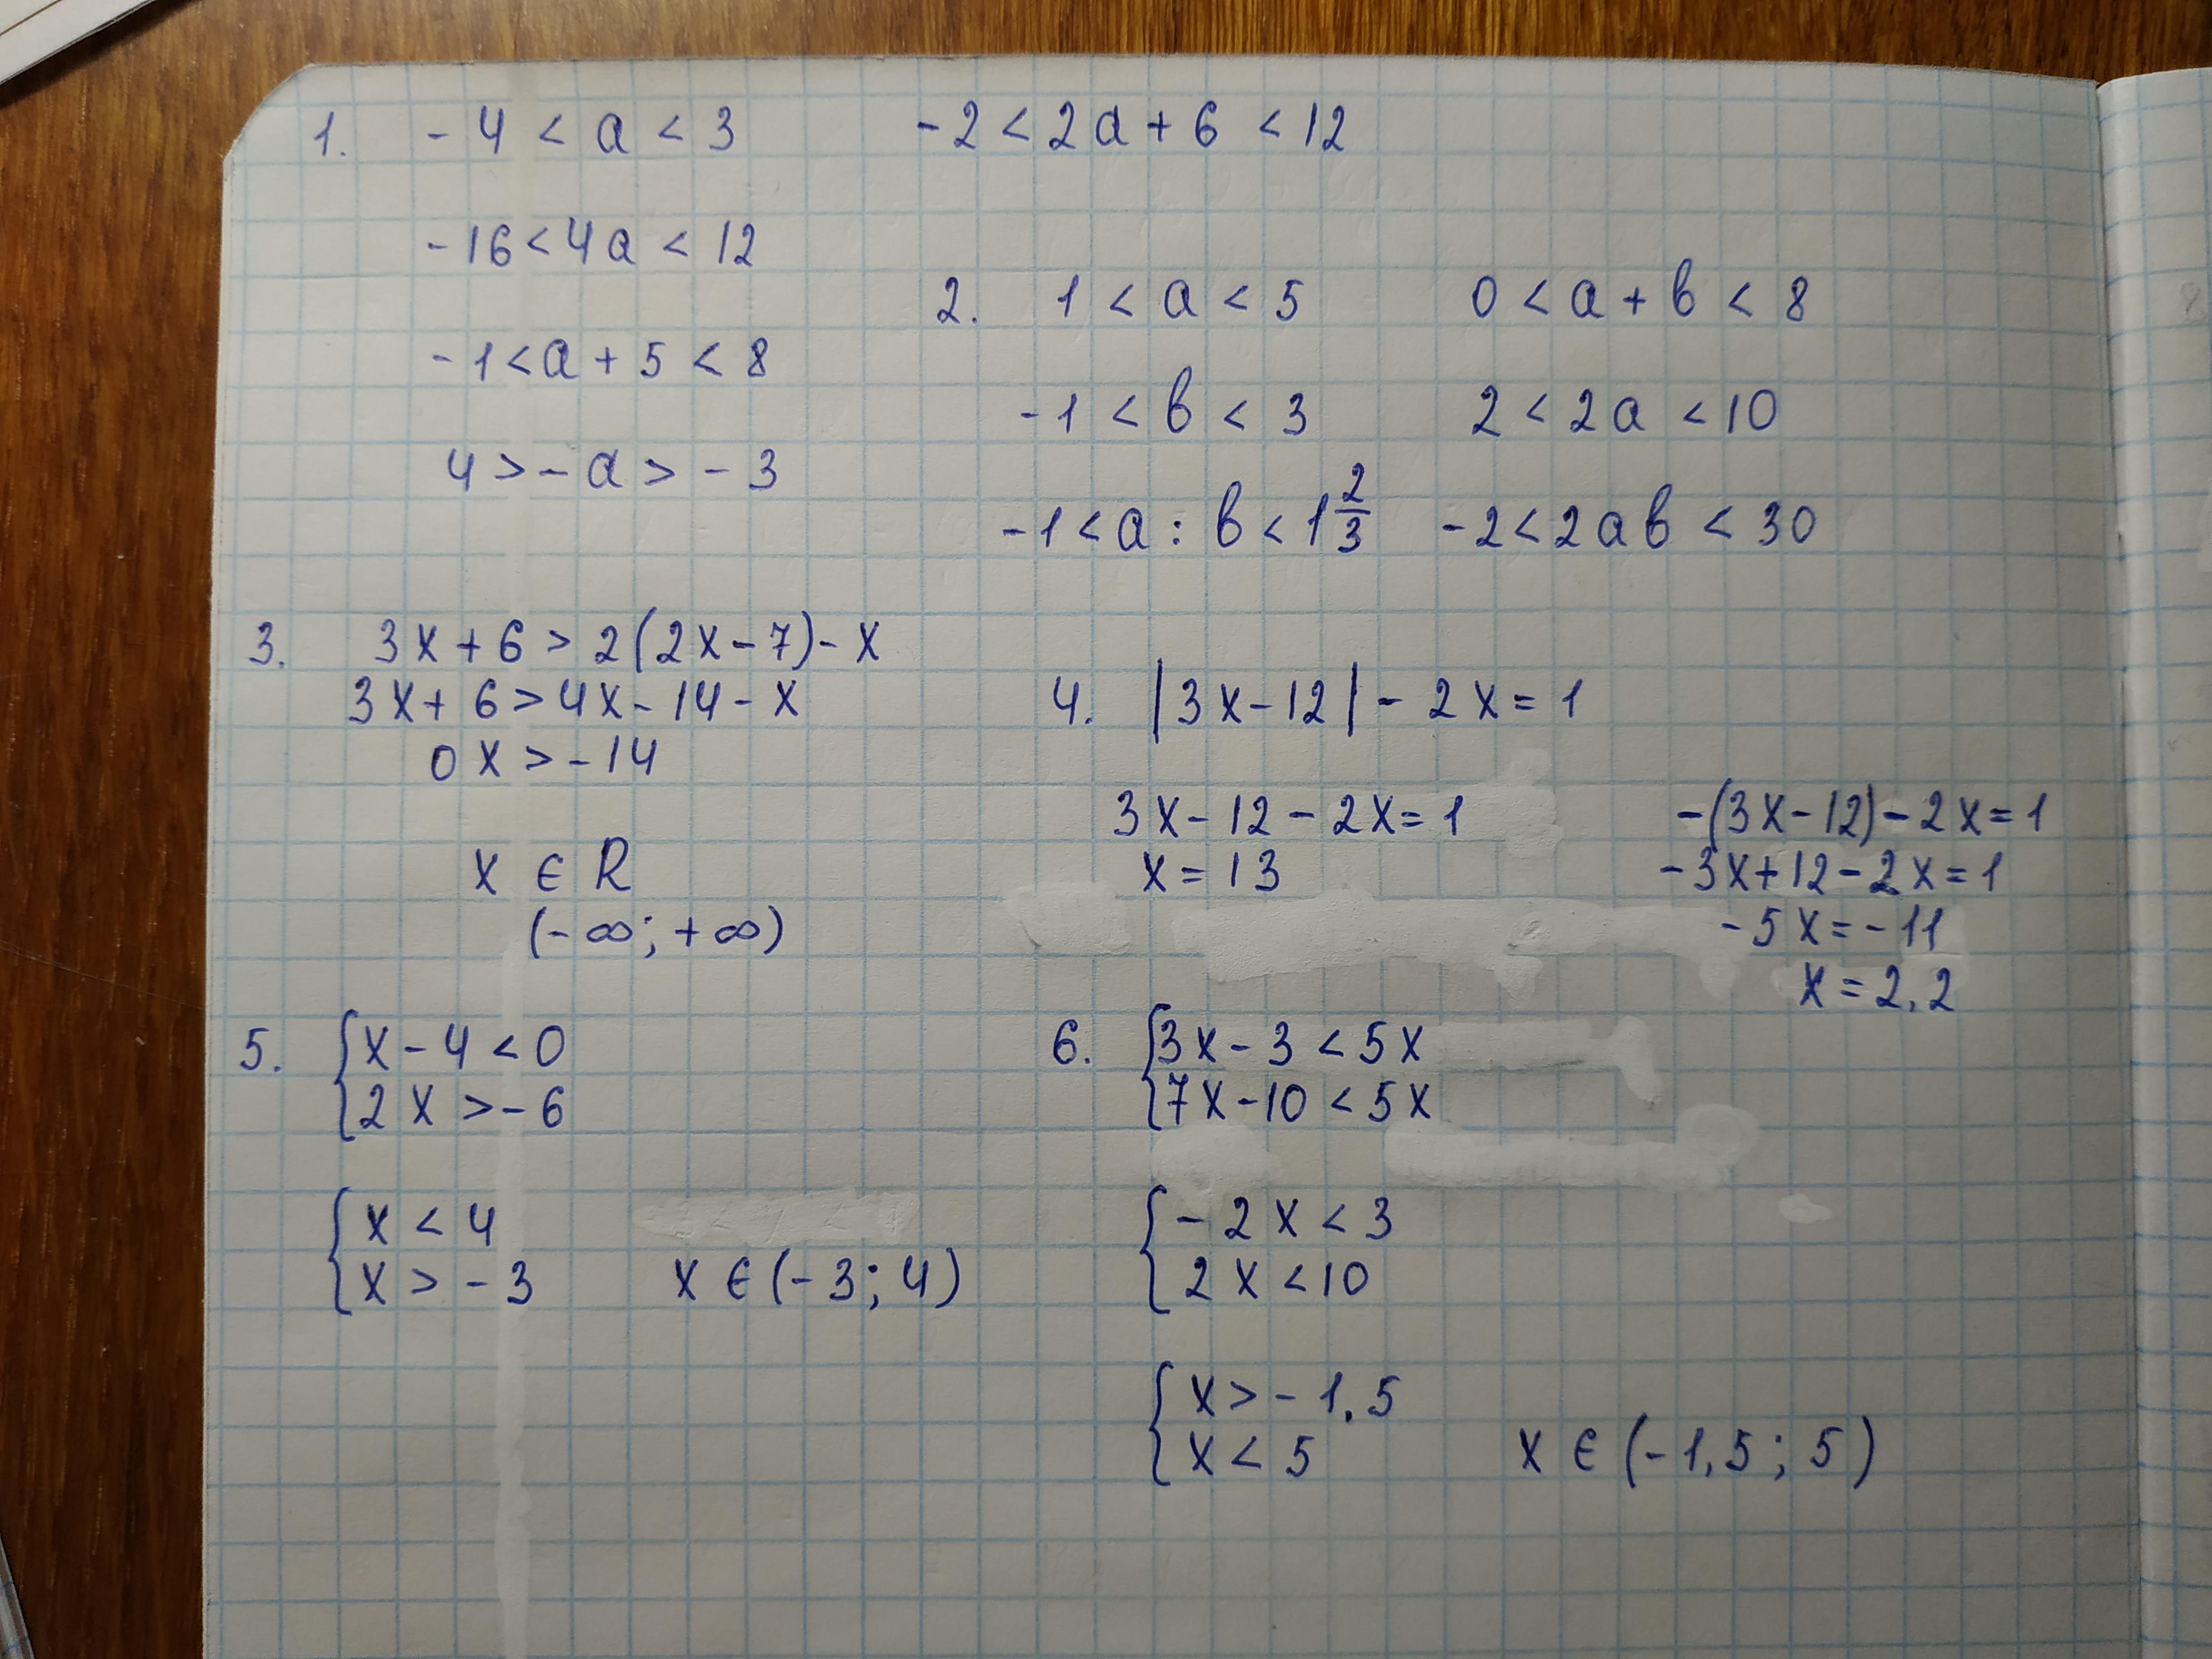 1. -4 < a < 3
-16 < 4a < 12
-1 < a + 5 < 8
4 > -a > -3
-2 < 2a + 6 < 12
2. 1 < a < 5
-1 < b < 3
-1 < a : b < 1 2/3
0 < a + b < 8
2 < 2a < 10
-2 < 2ab < 30
3. 3x + 6 > 2(2x - 7) - x
3x + 6 > 4x - 14 - x
0x > -14
x ∈ R
(-∞; +∞)
4. |3x - 12| - 2x = 1
3x - 12 - 2x = 1
x = 13
-(3x - 12) - 2x = 1
-3x + 12 - 2x = 1
-5x = -11
x = 2,2
5. { x - 4 < 0
2x > -6
{ x < 4
x > -3
x ∈ (-3; 4)
6. { 3x - 3 < 5x
7x - 10 < 5x
{ -2x < 3
2x < 10
{ x > -1,5
x < 5
x ∈ (-1,5; 5)